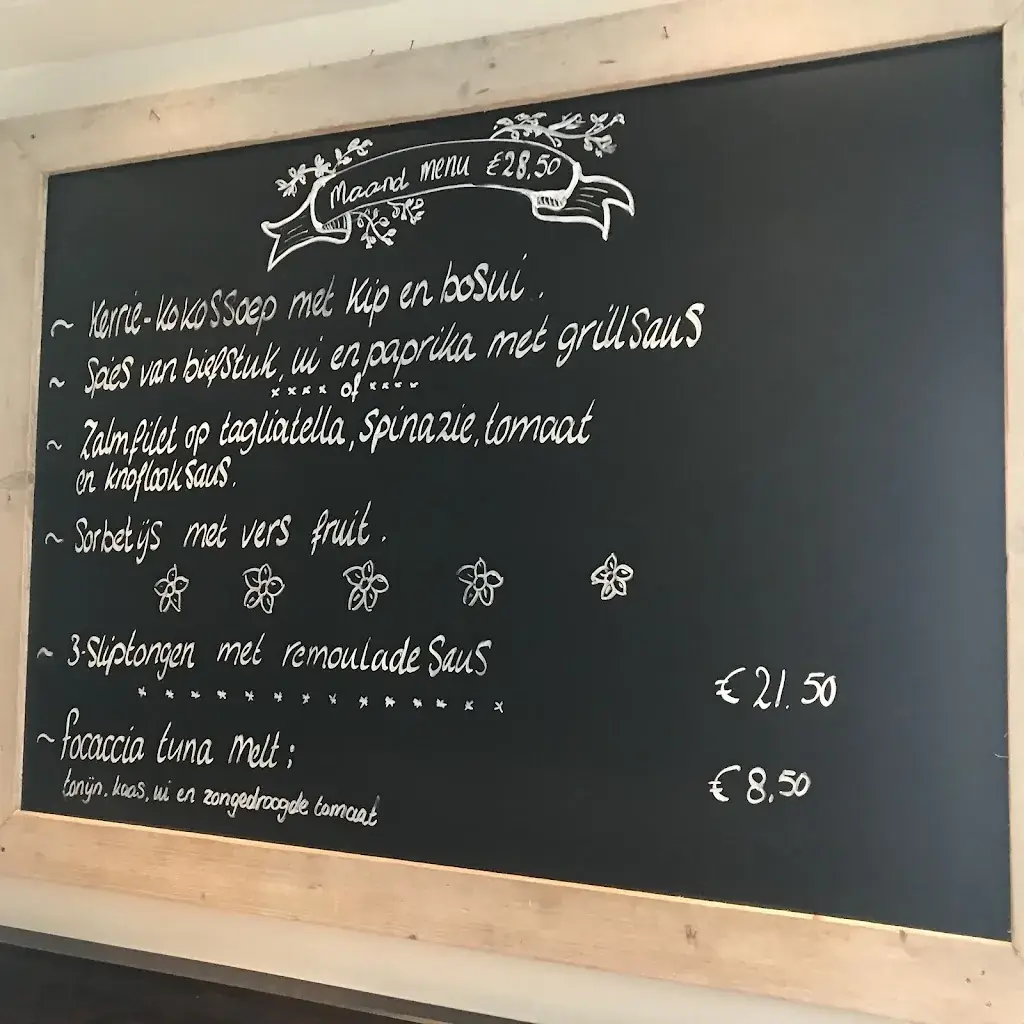 Maand menu €28,50
~ Kerrie-kokossoep met Kip en bosui.
~ Spies van biefstuk, ui en paprika met grillsaus
xxxx of xxxx
~ Zalmfilet op tagliatella, spinazie, tomaat
en knoflooksaus.
~ Sorbetijs met vers fruit.
~ 3-sliptongen met remoulade saus
€ 21.50
~ focaccia tuna melt;
€ 8,50
tonijn. kaas, ui en zongedroogde tomaat